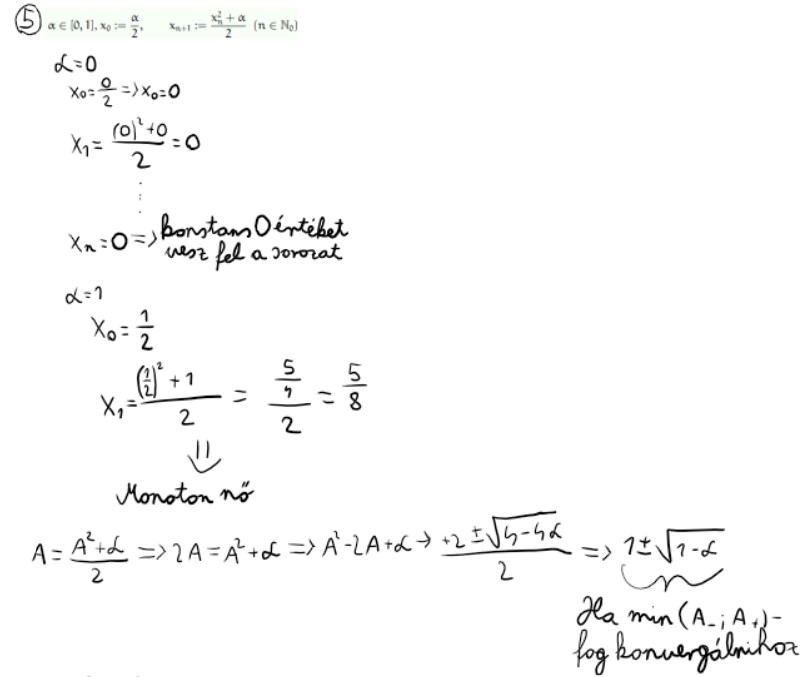 ⑤ α ∈ [0, 1], x₀ := α/2, xₙ₊₁ := (xₙ² + α)/2 (n ∈ ℕ₀)
α=0
x₀ = 0/2 => x₀=0
x₁ = ((0)²+0)/2 = 0
⋮
xₙ=0 => konstans 0 értéket
vesz fel a sorozat
α=1
x₀ = 1/2
x₁ = ((1/2)² + 1)/2 = (5/4)/2 = 5/8
⇓
Monoton nő
A = (A²+α)/2 => 2A = A²+α => A²-2A+α → (+2 ± √(4-4α))/2 => 1±√(1-α)
Ha min(A₋; A₊)-
fog konvergálnihoz